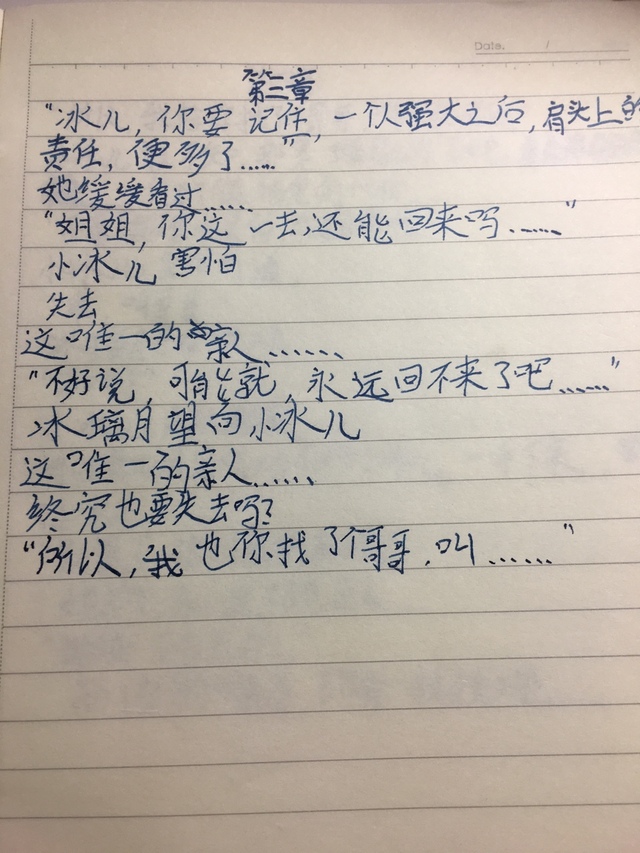 Date. /
第三章
“冰儿，你要记住，一个人强大之后，肩头上的
责任，便多了……”
她缓缓看过……
“姐姐，你这一去，还能回来吗……”
小冰儿害怕
失去
这唯一的亲人……
“不好说，可能就，永远回不来了吧……”
冰璃月望向小冰儿
这唯一的亲人……
终究也要失去吗？
“所以，我也你找了个哥哥，叫……”